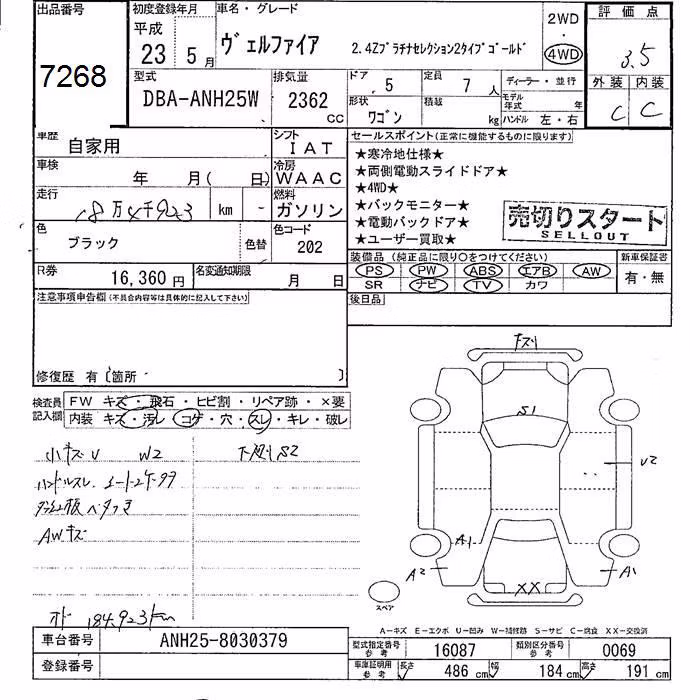 出品番号
7268
初度登録年月
平成
23 5月
車名・グレード
ヴェルファイア
2.4Zプラチナセレクション2タイプゴールド
2WD
・
4WD
評価点
3.5
外装 内装
C C
型式
DBA-ANH25W
排気量
2362
CC
ドア 5
定員 7 人
ディーラー・並行
形状 ワゴン
積載 kg
モデル年式 年
ハンドル 左・右
車歴 自家用
シフト IAT
車検 年 月( 日)
冷房 WAAC
走行 18万4千923 km -
燃料 ガソリン
色 ブラック
色替
色コード 202
R券 16,360円
名変通知期限 月 日
セールスポイント(正常に機能するものに限ります)
★寒冷地仕様★
★両側電動スライドドア★
★4WD★
★バックモニター★
★電動バックドア★
★ユーザー買取★
売切りスタート
SELLOUT
装備品 (純正品に限り○をつけてください)
PS PW ABS エアB AW
SR ナビ TV カワ
新車保証書
有・無
後日品
注意事項申告欄(不具合内容等は具体的に記入して下さい)
修復歴 有〔箇所 〕
検査員記入欄
FW キズ・飛石・ヒビ割・リペア跡・×要
内装 キズ・汚レ・コゲ・穴・スレ・キレ・破レ
小キズU W2
下廻りS2
ハンドルスレ
AWキズ
オド 184923km
キズリ
S1
U2
A1
A2
A1
XX
スペア
A－キズ E－エクボ U－凹み W－補修跡 S－サビ C－腐食 XX－交換済
車台番号 ANH25-8030379
登録番号
型式指定番号 参考 16087
類別区分番号 参考 0069
車庫証明用 参考 長さ 486 cm 幅 184 cm 高さ 191 cm